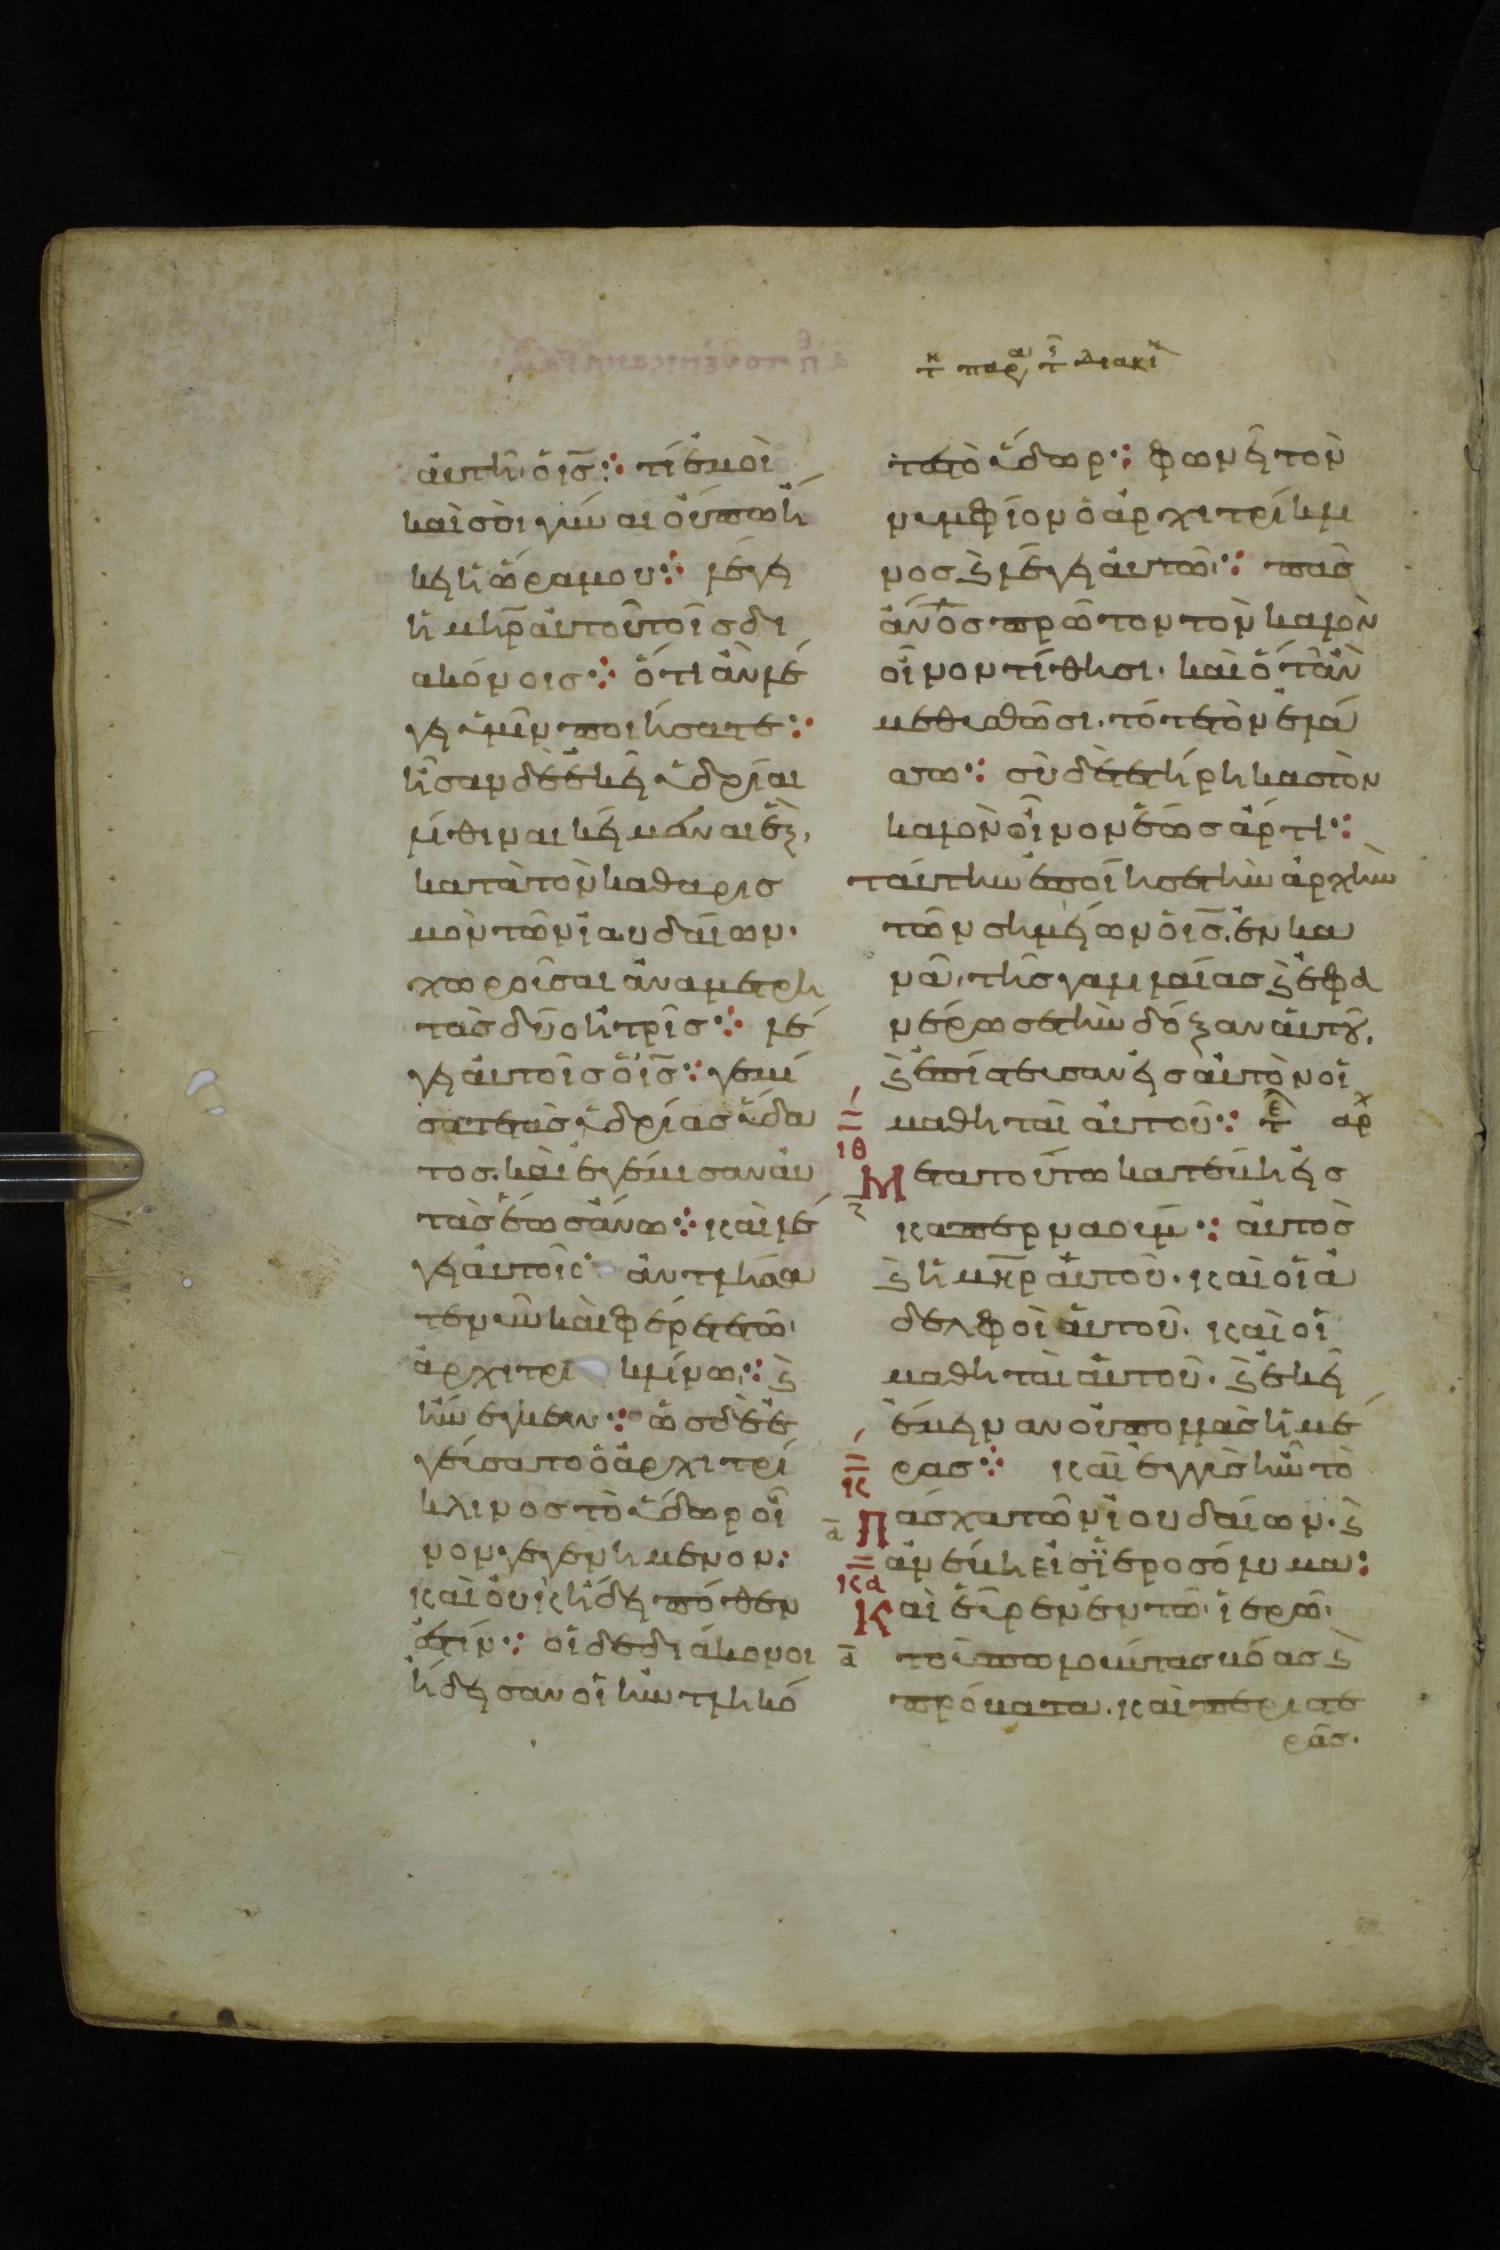 τῇ παρα τῆς διακι
αὐτῆ ὁ ις̄· τί ἐμοὶ
καὶ σοὶ γύναι οὔπω ἥ
κει ἡ ὥρα μου· λέγει
ἡ μηρ̄ αὐτοῦ τοῖς δι
ακόνοις· ὅτι ἂν λέ
γει ὑμῖν ποιήσατε·
ἦσαν δὲ ἐκεῖ ὑδρίαι
λίθιναι κείμεναι ἓξ,
κατὰ τὸν καθαρισ
μὸν τῶν ἰουδαίων·
χωροῦσαι ἀνα μετρη
τὰς δύο ἢ τρῖς· λέ
γει αὐτοῖς ὁ ις̄· γεμί
σατε τὰς ὑδρίας ὕδα
τος. καὶ ἐγέμισαν αὐ
τὰς ἕως ἄνω· καὶ λέ
γει αὐτοῖς· ἀντλήσα
τε νῦν καὶ φέρετε τῶ
ἀρχιτρικλίνω· ϗ
ἤνεγκαν· ὡς δὲ ἐ
γεύσατο ὁ ἀρχιτρί
κλινος τὸ ὕδωρ οἶ
νον γεγενημενον:
καὶ οὐκ ἤδει πόθεν
ἐστίν· οἱ δε διάκονοι
ἤδεισαν οἱ ἠντληκό
τες τὸ ὕδωρ· φωνεῖ τὸν
νυμφίον ὁ ἀρχιτρίκλι
νος ϗ λέγει αὐτῶ· πᾶς
ἄνος πρῶτον τὸν καλὸν
οἶνον τίθησι. καὶ ὅταν
μεθυσθῶσι. τότε τὸν ἐλά
σσω· σὺ δὲ τετήρηκας τὸν
καλὸν οἶνον ἕως ἄρτι·
ταύτην ἐποίησε τὴν ἀρχὴν
τῶν σημείων ὁ ις̄. ἐν κα
νᾶ, τῆς γαλιλαίας ϗ ἐφα
νέρωσε τὴν δόξαν αὐτοῦ,
ϗ ἐπίστευσαν εἰς αὐτὸν οἱ
μαθηταὶ αὐτοῦ· τε αρχ
ιθ
Μετα τοῦτο κατέβη εἰς
ζ
καπερναουμ· αὐτὸς
ϗ ἡ μηρ αὐτοῦ. καὶ οἱ ἀ
δελφοὶ αὐτοῦ. καὶ οἱ
μαθηταὶ αὐτοῦ. ϗ ἐκεῖ
ἔμειναν οὐ πολλὰς ἡμέ
ρας· καὶ ἐγγὺς ἦν τὸ
κ
Πάσχα τῶν ἰουδαίων. ϗ
α
ἀνέβη εἰς ϊεροσόλυμα:
κα
Καὶ εὗρεν ἐν τῶ ἱερῶ
τοὺς πωλοῦντας βόας ϗ
α
πρόβατα. καὶ περιστε
ράς.